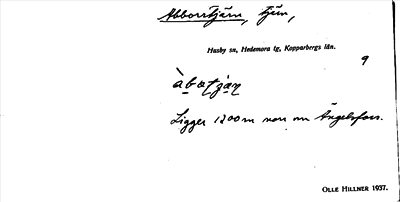 Abborrtjärn, tjärn,
Husby sn, Hedemora tg, Kopparbergs län.
9
Ligger 1200 m norr om Ängelsfors.
OLLE HILLNER 1937.